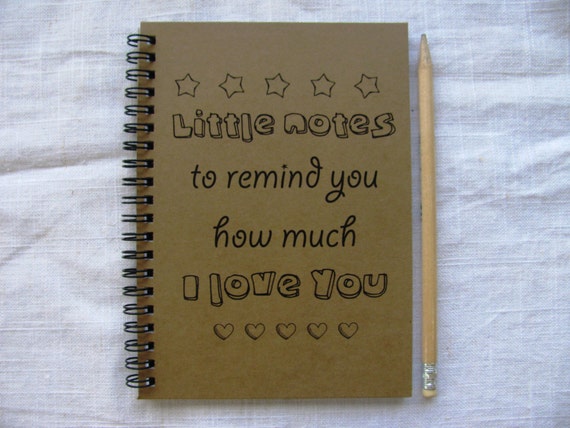 Little notes
to remind you
how much
I love you